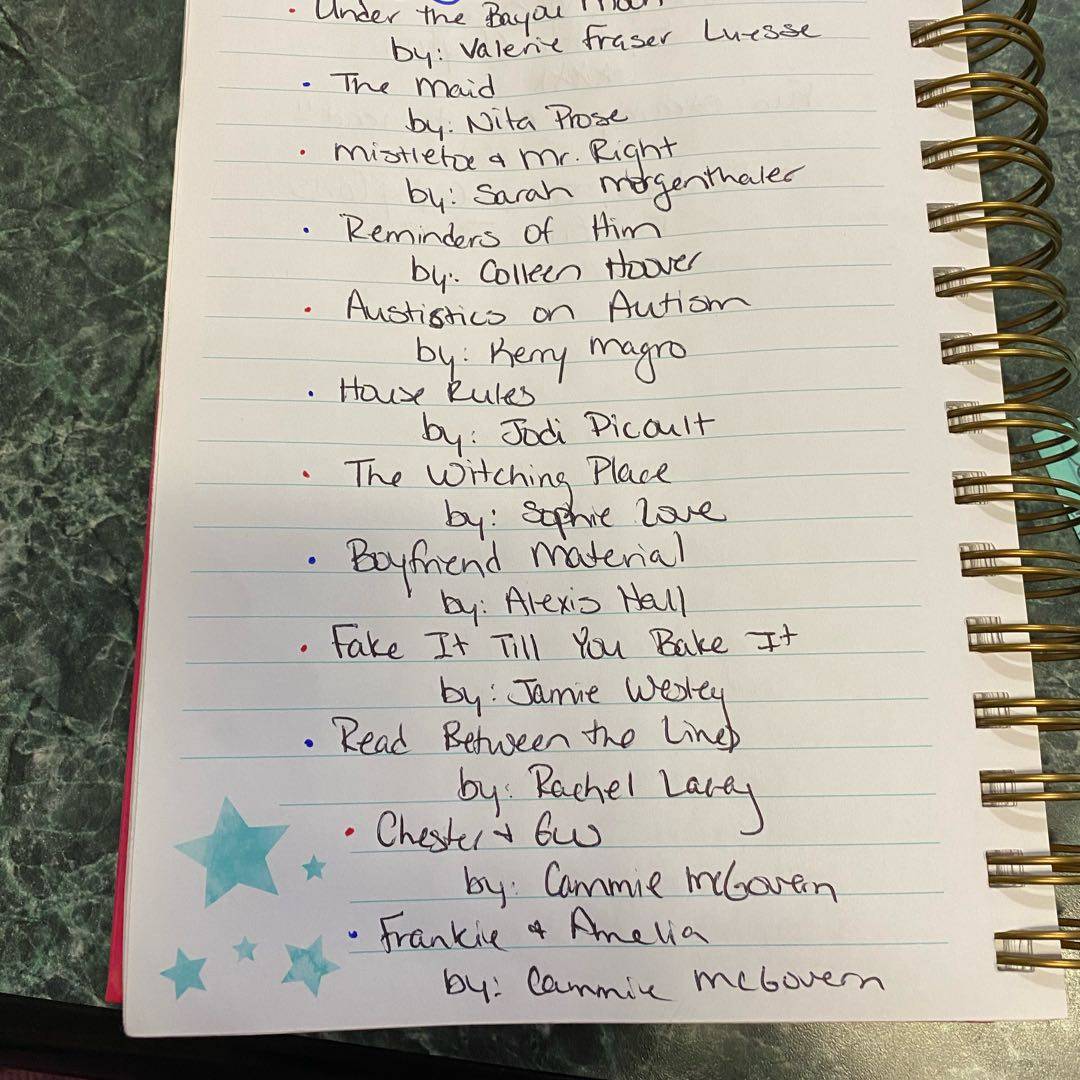 • Under the Bayou Moon
by: Valerie Fraser Luesse
• The Maid
by: Nita Prose
• Mistletoe & Mr. Right
by: Sarah Morgenthaler
• Reminders of Him
by: Colleen Hoover
• Austistics on Autism
by: Kerry Magro
• House Rules
by: Jodi Picoult
• The Witching Place
by: Sophie Love
• Boyfriend Material
by: Alexis Hall
• Fake It Till You Bake It
by: Jamie Wesley
• Read Between the Lines
by: Rachel Lacey
• Chester & Gus
by: Cammie McGovern
• Frankie & Amelia
by: Cammie McGovern